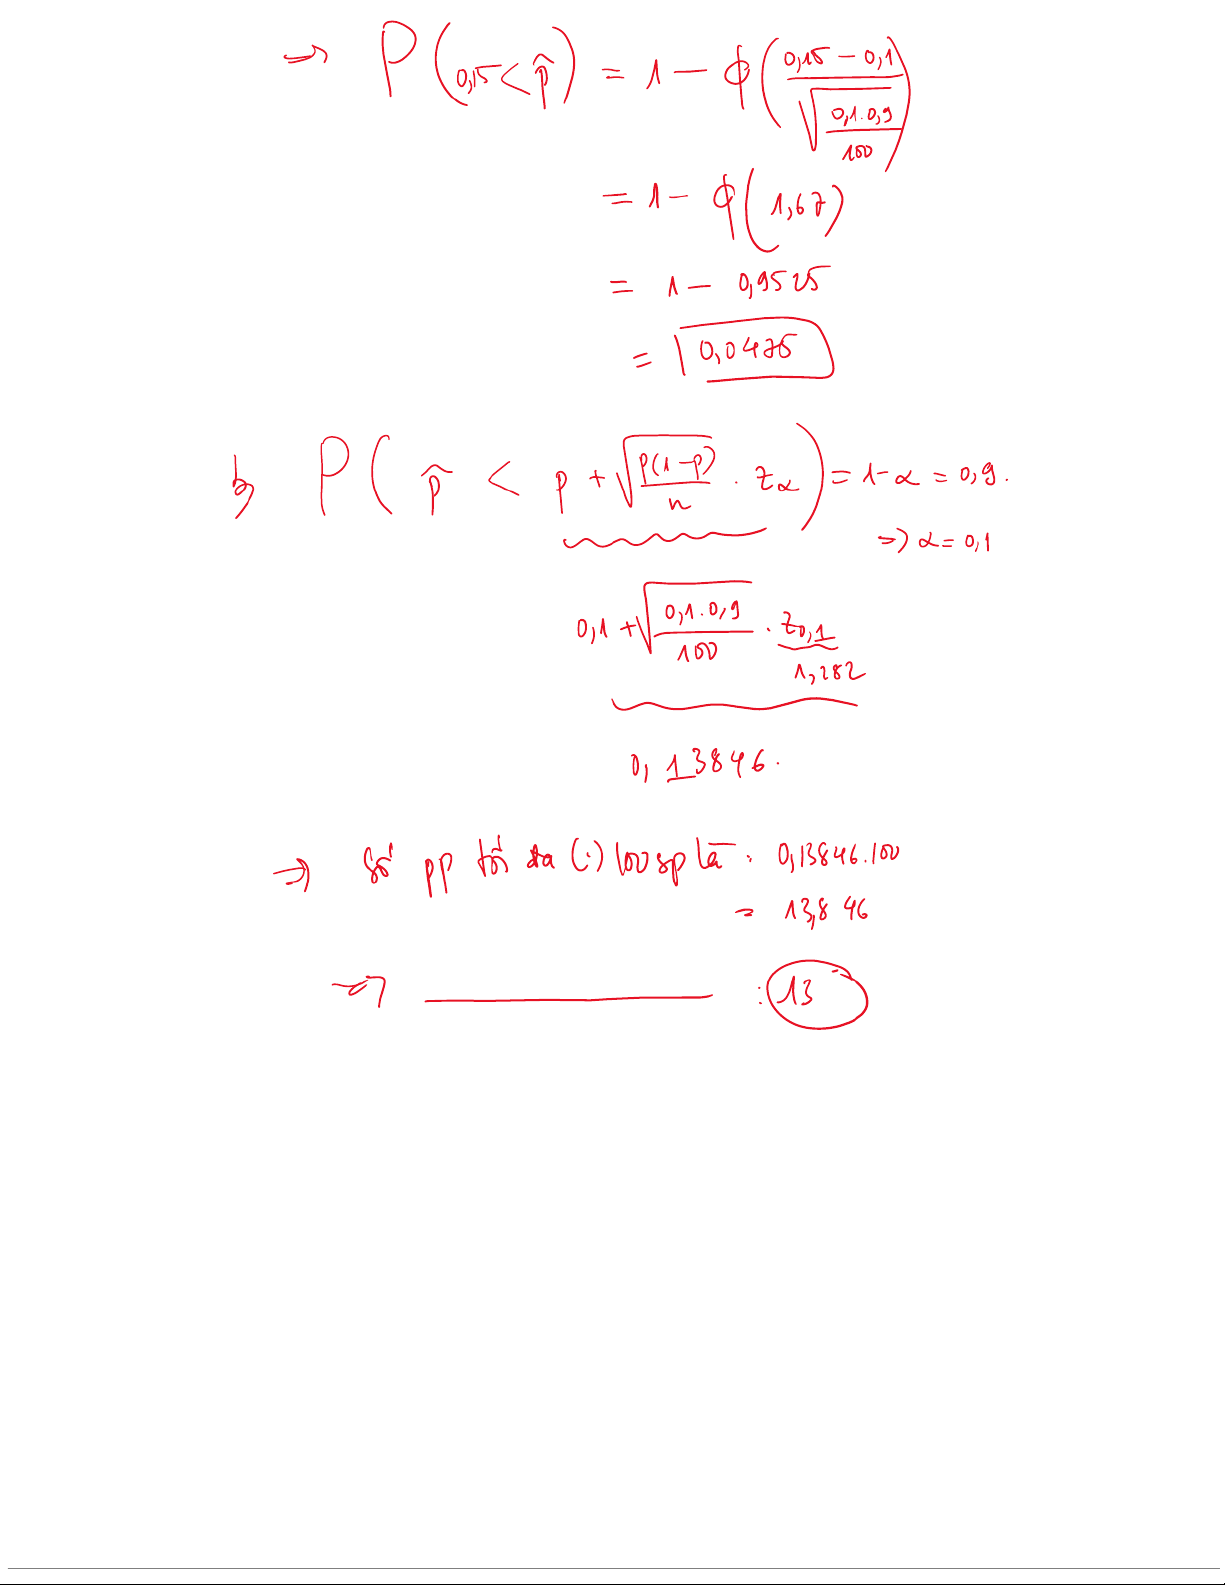 → P(0,15 < p̂) = 1 − ϕ((0,15 − 0,1) / √(0,1.0,9 / 100))
= 1 − ϕ(1,67)
= 1 − 0,9525
= 0,0475
b, P( p̂ < p + √(p(1−p) / n) . zα ) = 1−α = 0,9.
⇒ α = 0,1
0,1 + √(0,1.0,9 / 100) . z0,1
1,282
0,13846.
⇒ số pp tối đa (:) 100 sp là : 0,13846.100
= 13,846
⇒ ———— : 13